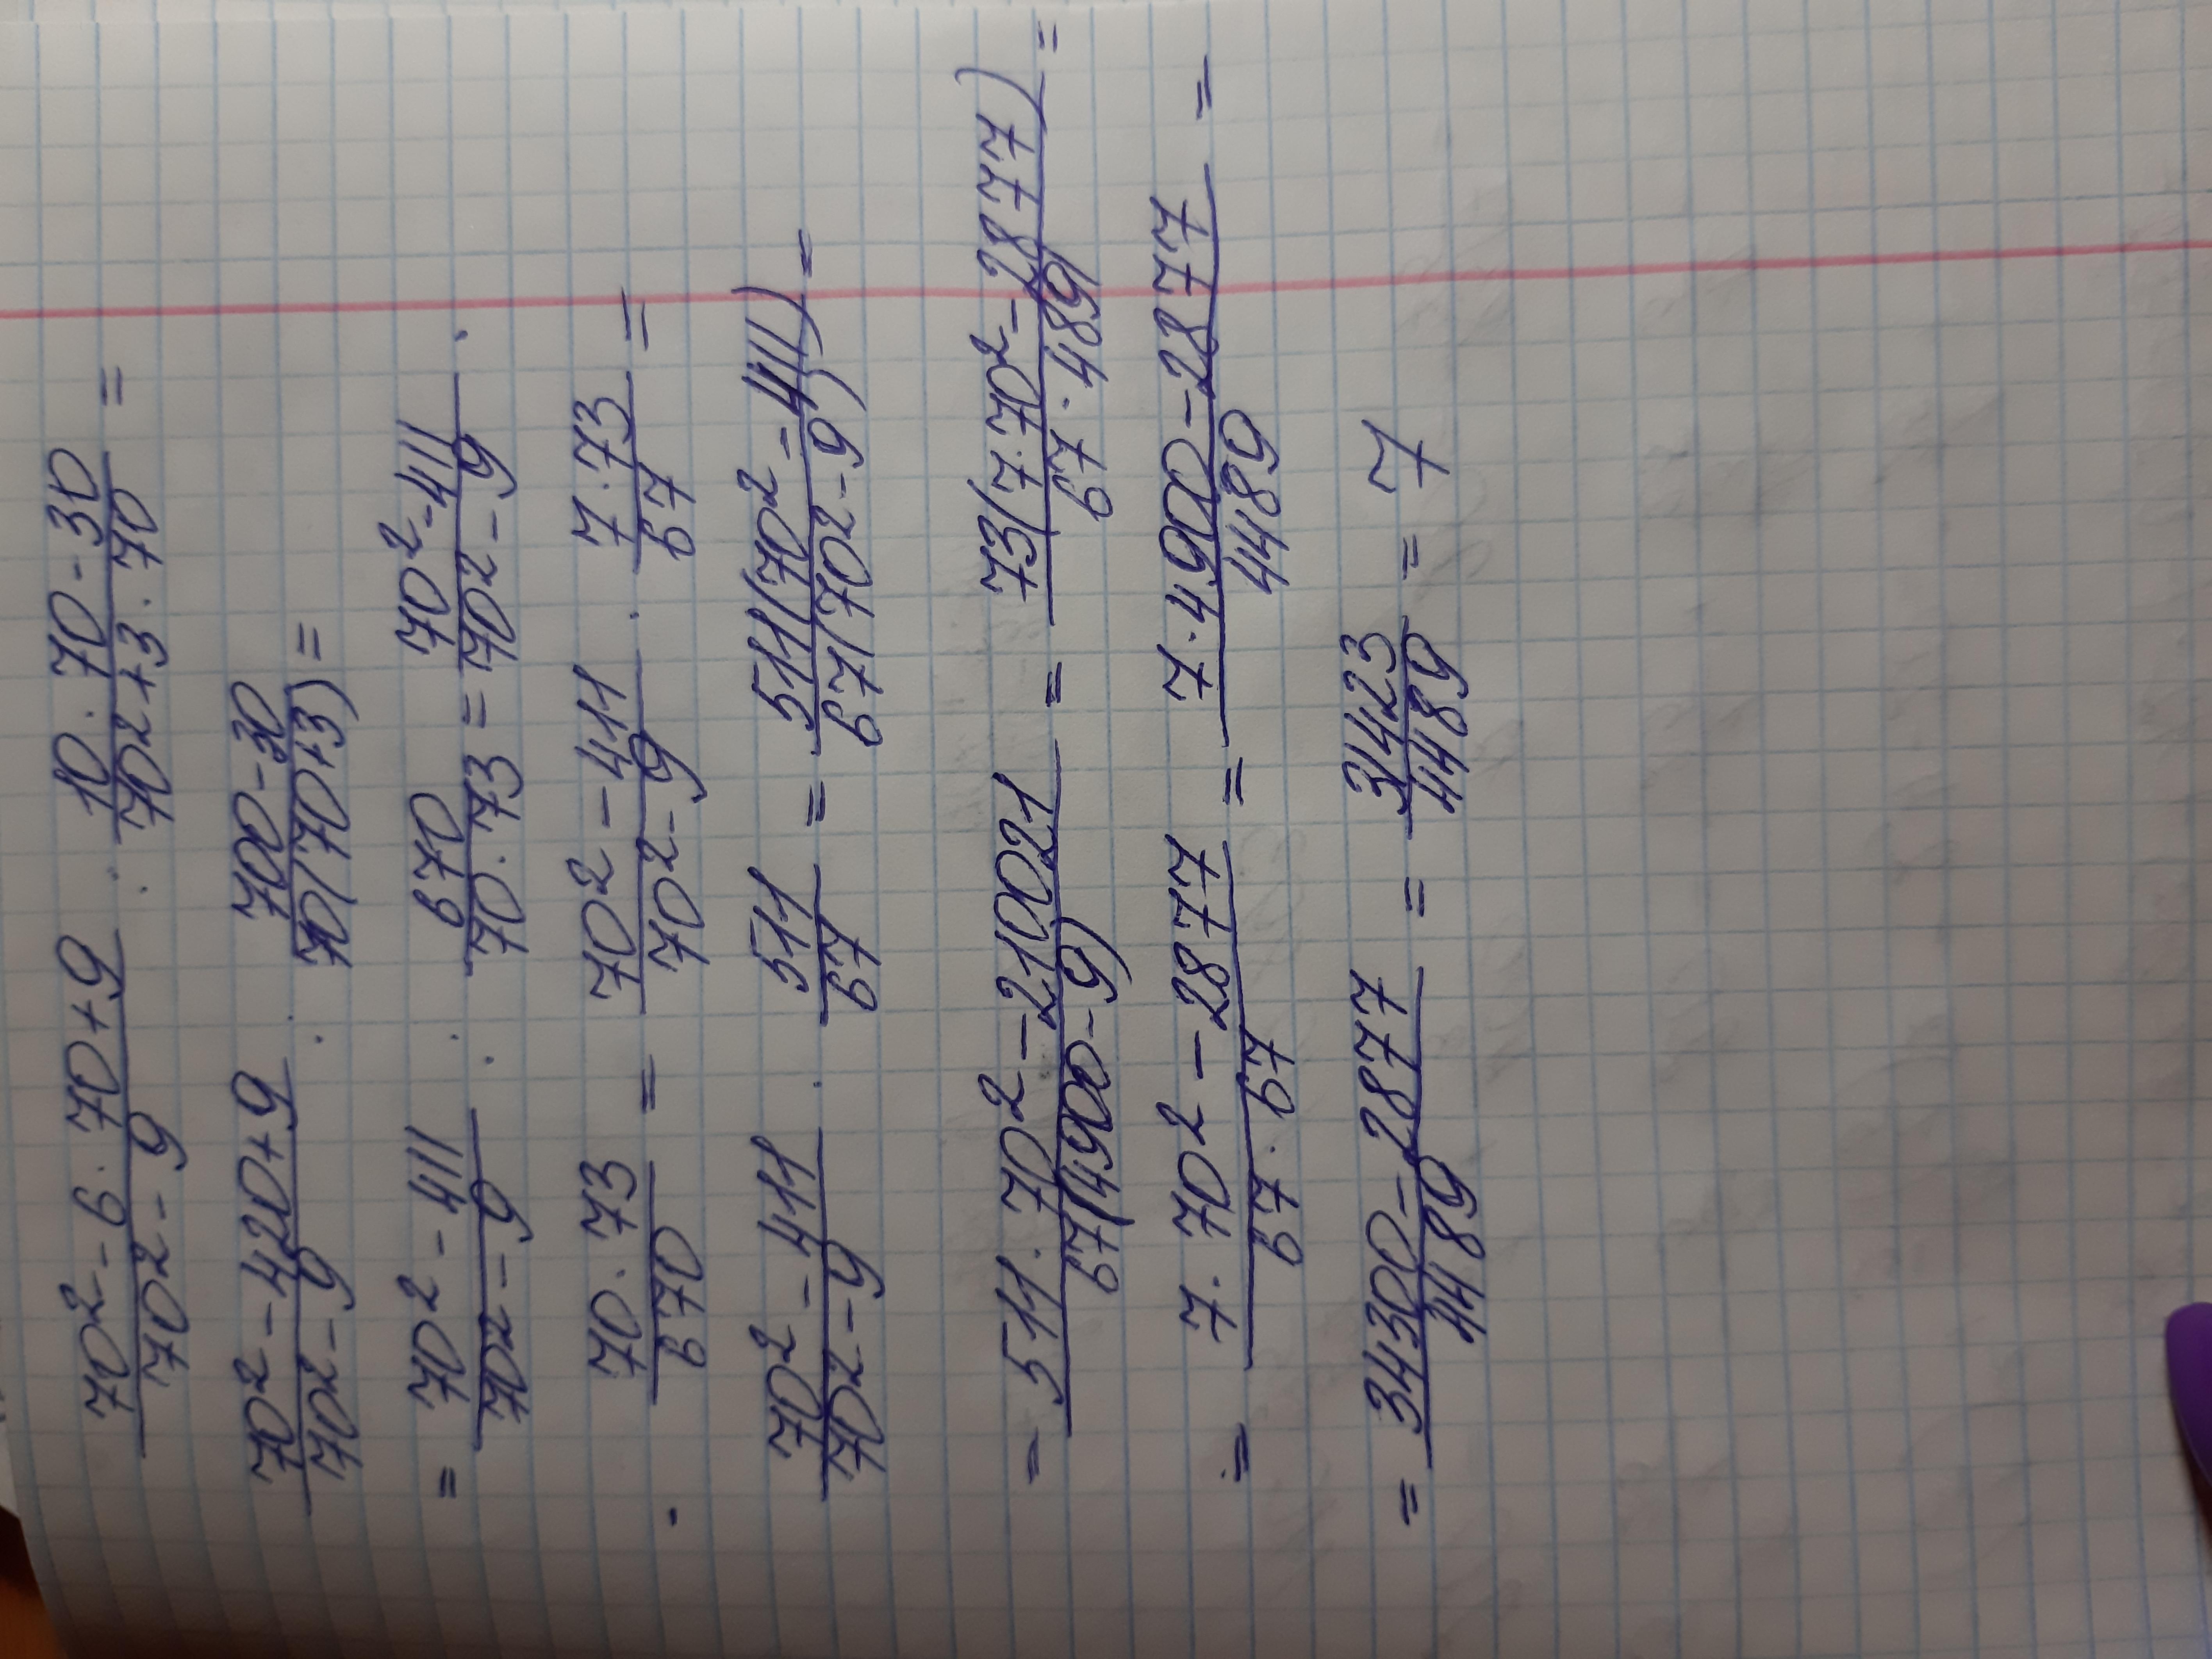 \frac{70^2-6·70+9}{70^2-9} : \frac{10·70-30}{70^2+3·70} =
\frac{70^2-420+9}{70^2-9} : \frac{700-30}{70(70+3)} =
= \frac{70^2-411}{70^2-9} : \frac{670}{70·73} = \frac{70^2-411}{70^2-9} ·
· \frac{70·73}{670} = \frac{70^2-411}{70^2-9} · \frac{7·73}{67} =
\frac{70^2-411}{70^2-9} · \frac{511}{67} = \frac{511(70^2-411)}{67(70^2-9)} =
= \frac{511·70^2-210021}{67(4900-9)} = \frac{73(7·70^2-2877)}{67·489} =
= \frac{7·70^2-2877}{67·67} = \frac{7·4900-2877}{4489} =
= \frac{34300-2877}{4489} = \frac{31423}{4489} = 7